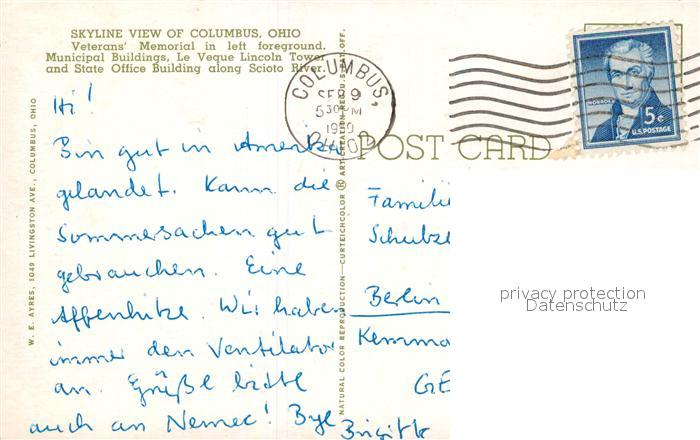 SKYLINE VIEW OF COLUMBUS, OHIO
Veterans' Memorial in left foreground.
Municipal Buildings, Le Veque Lincoln Tower
and State Office Building along Scioto River.
W. E. AYRES, 1049 LIVINGSTON AVE., COLUMBUS, OHIO
Hi!
Bin gut in Amerika
gelandet. Kann die
Sommersachen gut
gebrauchen. Eine
Affenhitze. Wir haben
immer den Ventilator
an. Grüße bitte
auch an Nemec! Bye
Brigitte
NATURAL COLOR REPRODUCTION—CURTEICHCOLOR ® ART-CREATION REG. U.S. PAT. OFF.
COLUMBUS,
SEP 9
530 PM
OHIO
POST CARD
MONROE
5¢
U.S. POSTAGE
Famili
Schulze
Berlin
Kemma
GE
privacy protection
Datenschutz